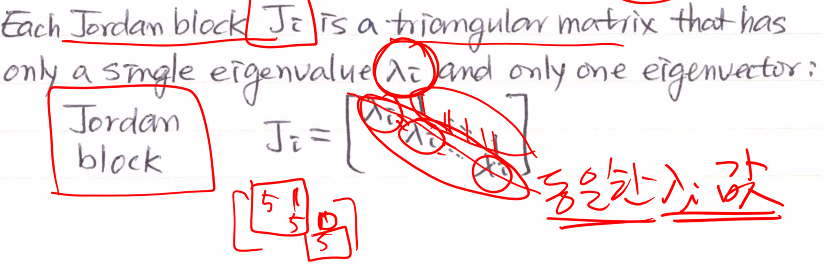 Each Jordan block Ji is a triangular matrix that has
only a single eigenvalue λi and only one eigenvector:
Jordan
block
Ji = [λi 1
λi ⋱ 1
λi]
동일한 λi 값
[5 1
5 0
5]